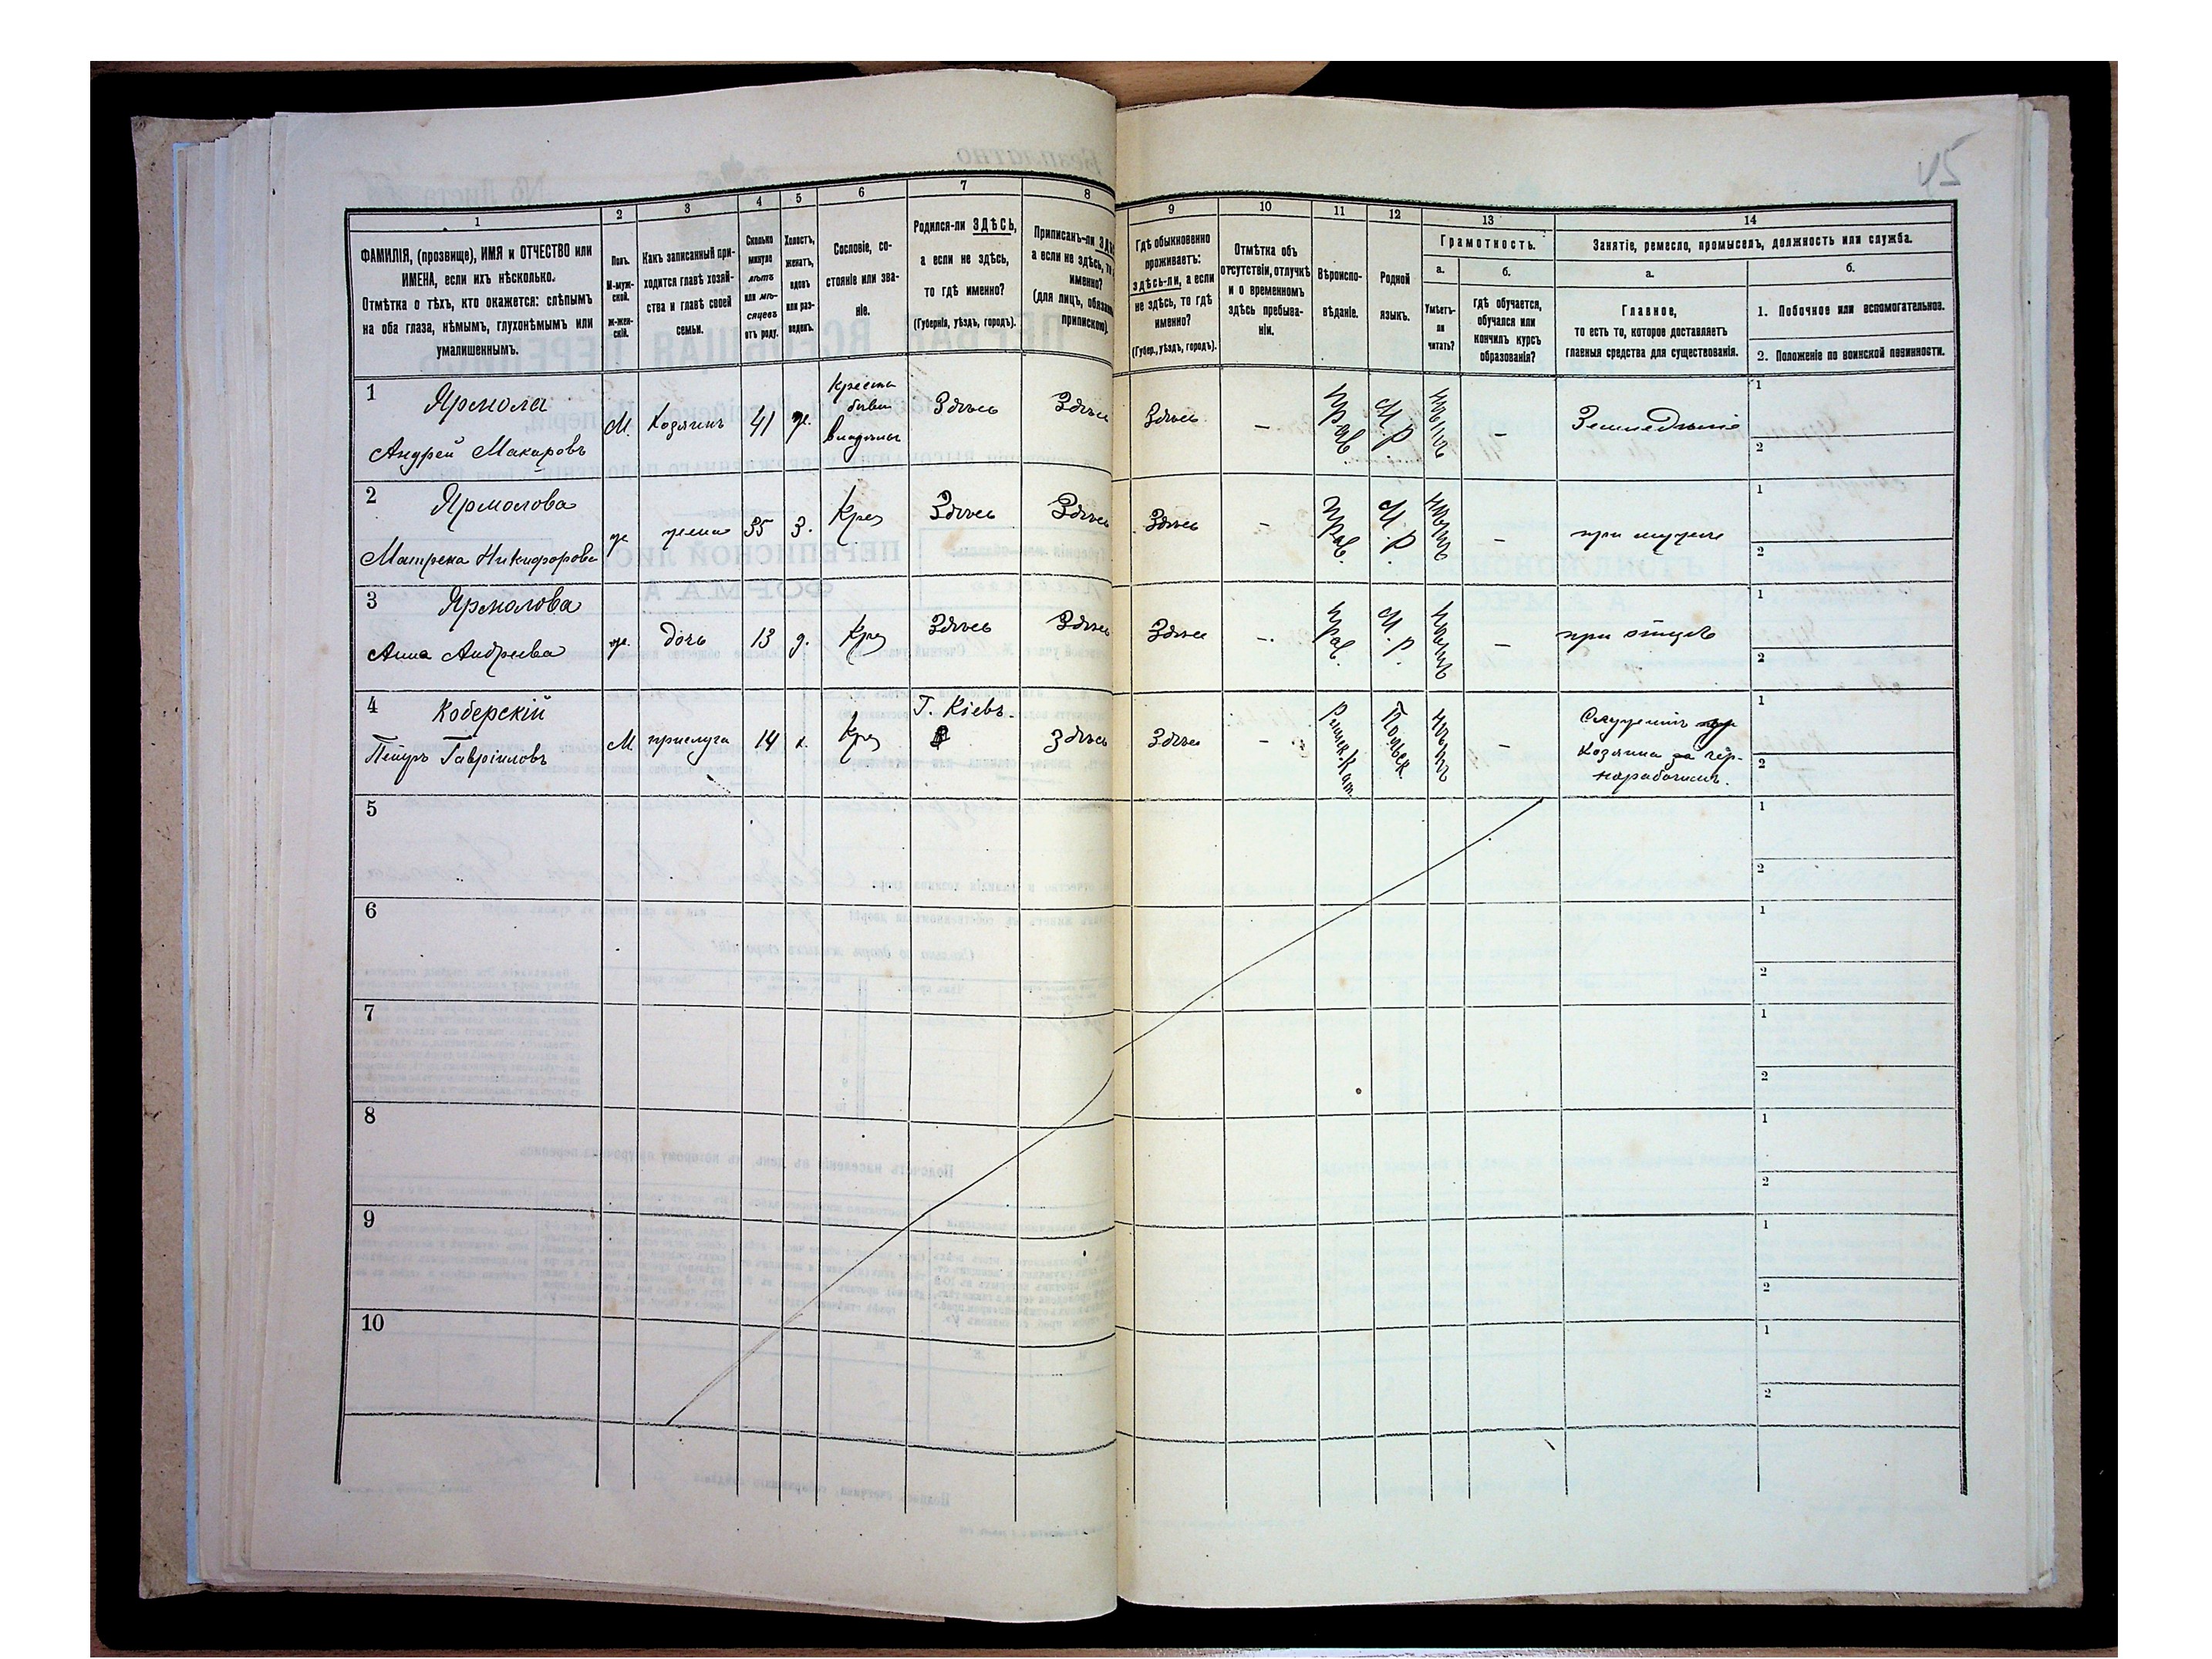 45
1
2
3
4
5
6
7
8
9
10
11
12
13
14
ФАМИЛІЯ, (прозвище), ИМЯ и ОТЧЕСТВО или
ИМЕНА, если ихъ нѣсколько.
Отмѣтка о тѣхъ, кто окажется: слѣпымъ
на оба глаза, нѣмымъ, глухонѣмымъ или
умалишеннымъ.
Полъ.
М-муж-
ской.
ж-жен-
скій.
Какъ записанный при-
ходится главѣ хозяй-
ства и главѣ своей
семьи.
Сколько
минуло
лѣтъ
или мѣ-
сяцевъ
отъ роду.
Холостъ,
женатъ,
вдовъ
или раз-
веденъ.
Сословіе, со-
стояніе или зва-
ніе.
Родился-ли ЗДѢСЬ,
а если не здѣсь,
то гдѣ именно?
(Губернія, уѣздъ, городъ).
Приписанъ-ли
а если не здѣсь,
именно?
(для лицъ,
припискою).
Гдѣ обыкновенно
проживаетъ:
здѣсь-ли, а если
не здѣсь, то гдѣ
именно?
(Губер., уѣздъ, городъ).
Отмѣтка объ
отсутствіи, отлучкѣ
и о временномъ
здѣсь пребыва-
ніи.
Вѣроиспо-
вѣданіе.
Родной
языкъ.
Грамотность.
а.
Умѣетъ-
ли
читать?
б.
гдѣ обучается,
обучался или
кончилъ курсъ
образованія?
Занятіе, ремесло, промыселъ, должность или служба.
а.
Главное,
то есть то, которое доставляетъ
главныя средства для существованія.
б.
1. Побочное или вспомогательное.
2. Положеніе по воинской повинности.
1
Ярмола
Андрей Макаровъ
М.
Хозяинъ
41
ж.
Крестьян
бывш
владѣльч
Здѣсь
Здѣсь
Здѣсь
–
Прав.
М. Р.
нѣтъ
–
Земледѣліе
1
2
2
Ярмолова
Матрена Никифорова
ж
жена
35
З.
Крес
Здѣсь
Здѣсь
Здѣсь
–
Прав.
М. Р.
нѣтъ
–
при мужѣ
1
2
3
Ярмолова
Анна Андреева
ж.
дочь
13
д.
Крес
Здѣсь
Здѣсь
Здѣсь
–
Прав.
М. Р.
нѣтъ
–
при отцѣ
1
2
4
Коберскій
Петръ Гавріиловъ
М
прислуга
14
х.
Крес
Г. Кіевъ.
здѣсь
Здѣсь
–
Римск. Кат.
Польск.
нѣтъ
–
Служитъ
хозяина за чер-
норабочимъ.
1
2
5
1
2
6
1
2
7
1
2
8
1
2
9
1
2
10
1
2